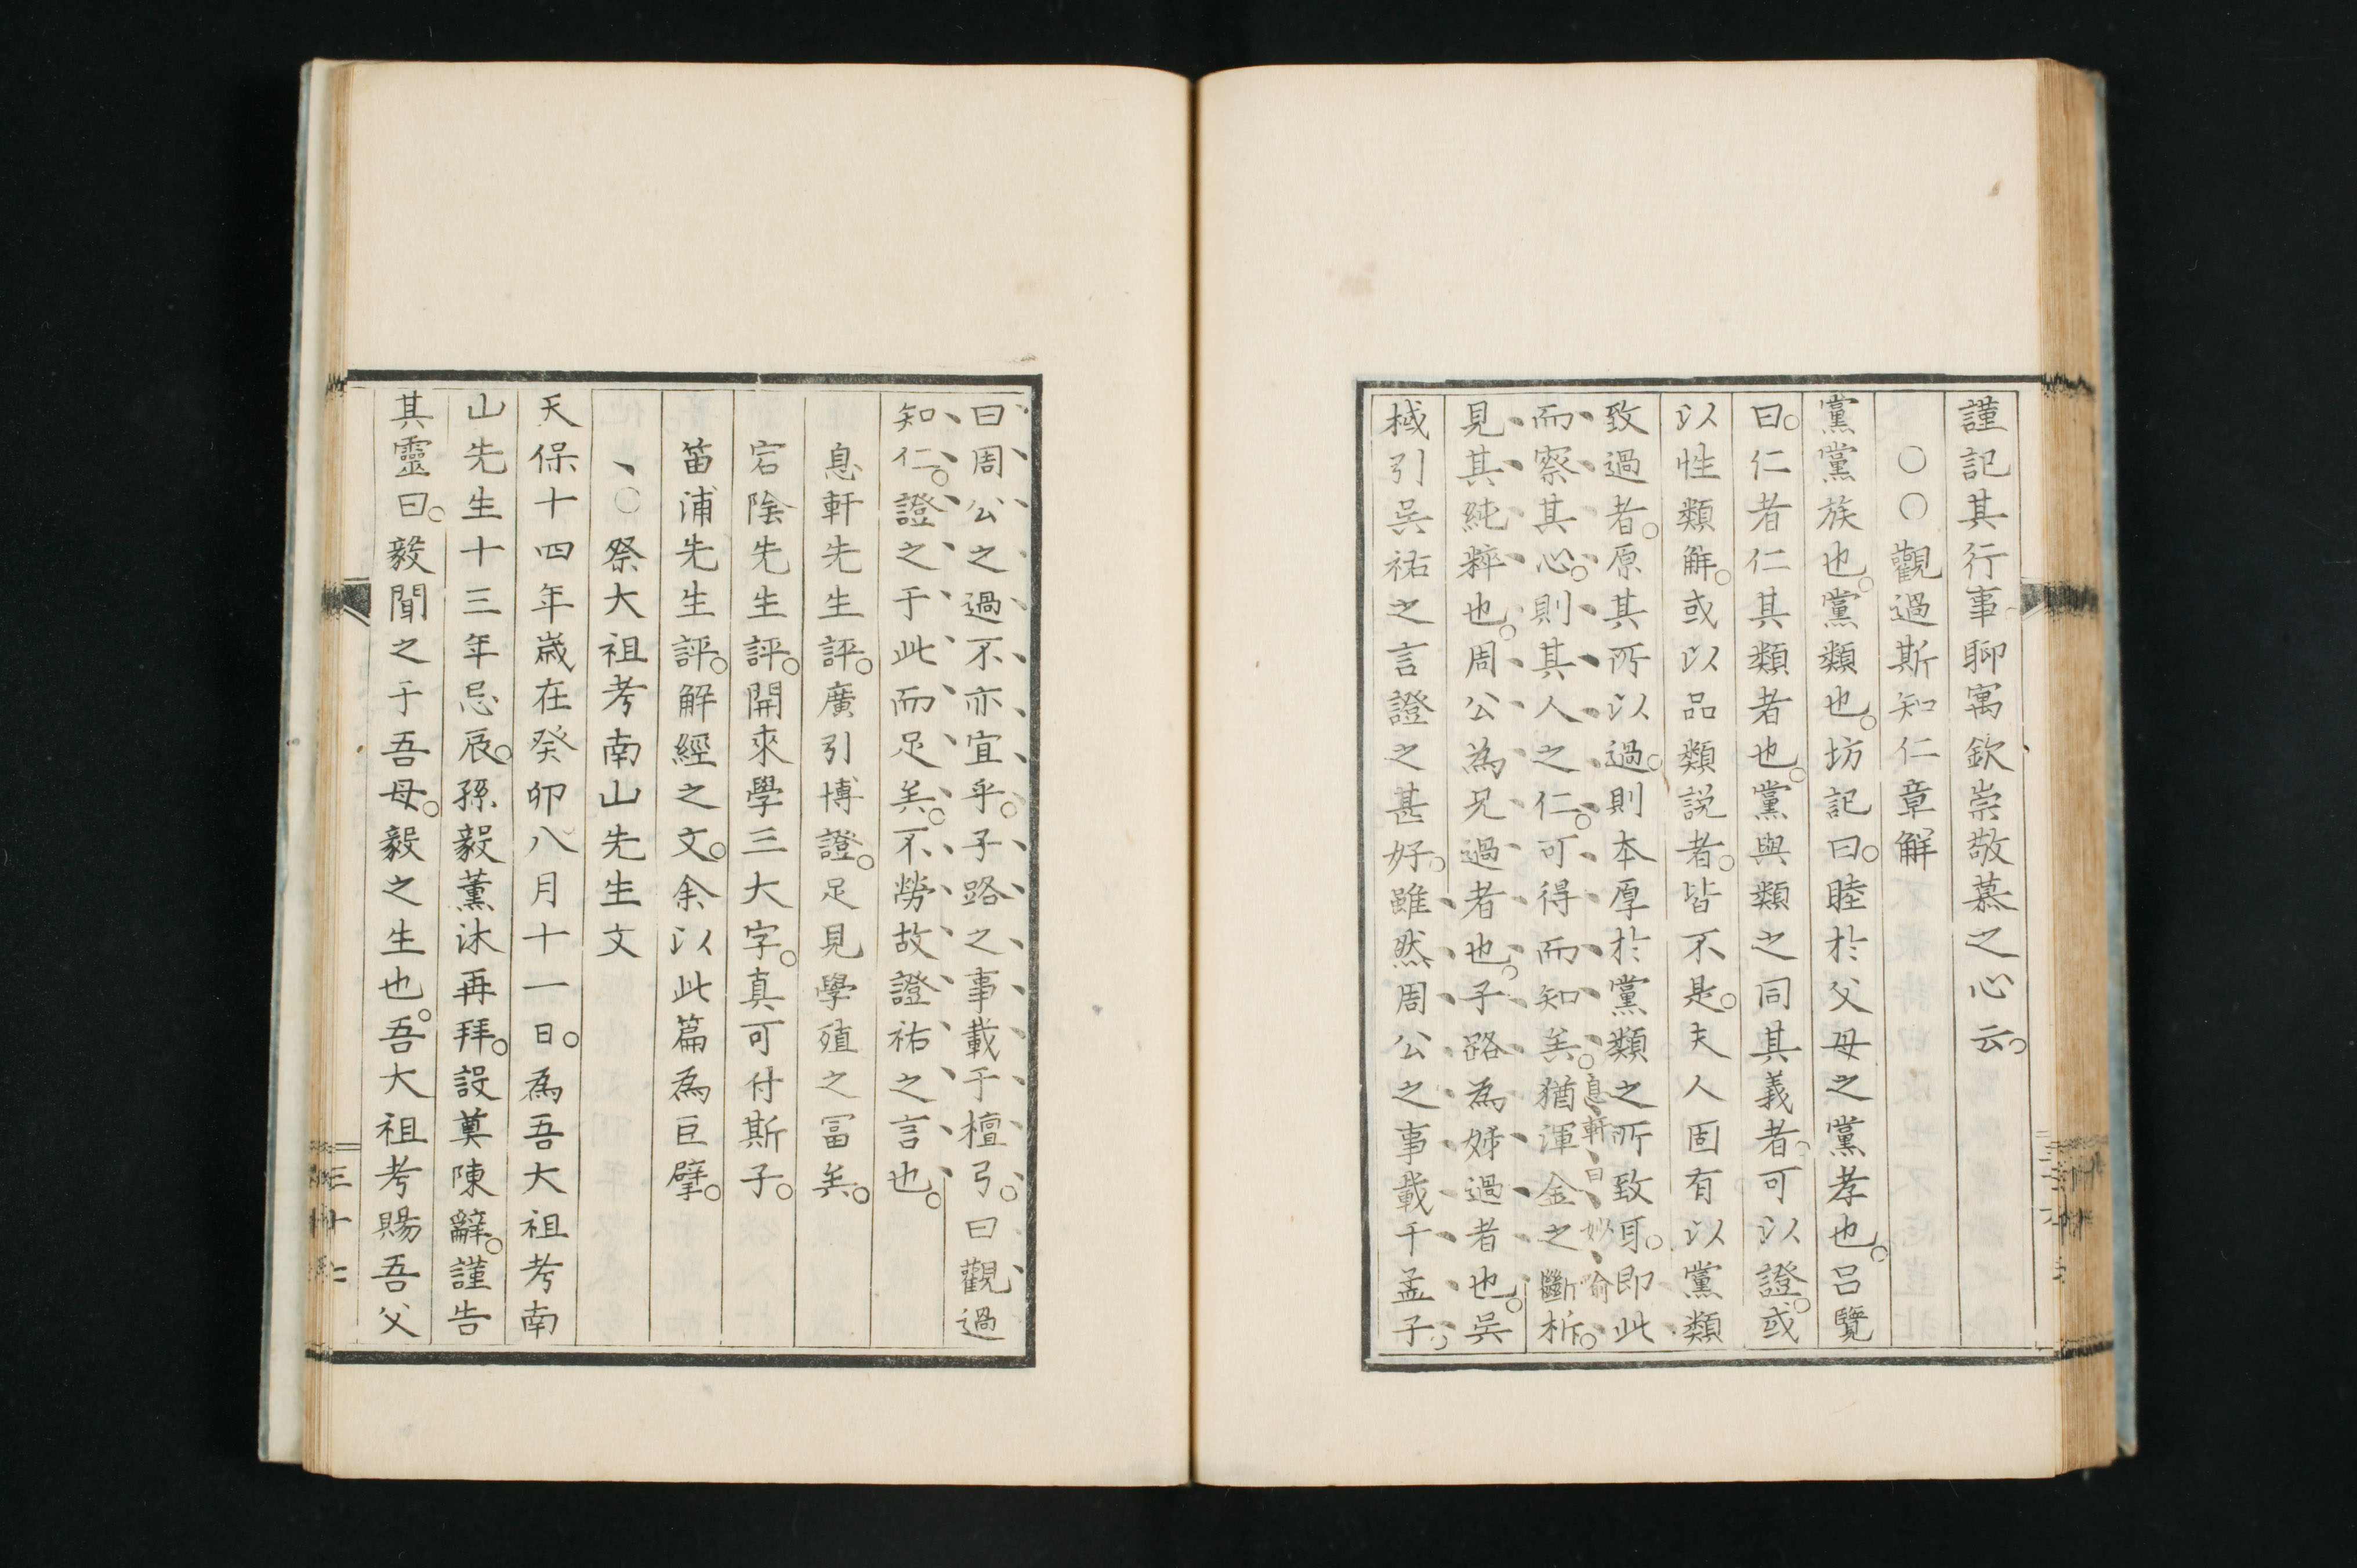 謹記其行事聊寓欽崇敬慕之心云。
○○觀過斯知仁章解
黨黨族也。黨類也。坊記曰。睦於父母之黨孝也。呂覽
曰。仁者仁其類者也。黨與類之同其義者。可以證。或
以性類解。或以品類説者。皆不是。夫人固有以黨類
致過者。原其所以過。則本厚於黨類之所致耳。即此
而察其心。則其人之仁。可得而知矣。猶渾金之斷析。
息軒曰妙喻
見其純粹也。周公為兄過者也。子路為姊過者也。吳
棫引吳祐之言證之甚好。雖然周公之事載于孟子。
曰周公之過不亦宜乎。子路之事載于檀弓。曰觀過
知仁。證之于此而足矣。不勞故證祐之言也。
息軒先生評。廣引博證。足見學殖之冨矣。
宕陰先生評。開來學三大字。真可付斯子。
笛浦先生評。解經之文。余以此篇為巨擘。
、○祭大祖考南山先生文
天保十四年歳在癸卯八月十一日。為吾大祖考南
山先生十三年忌辰。孫毅薫沐再拜。設奠陳辭。謹告
其靈曰。毅聞之于吾母。毅之生也。吾大祖考賜吾父
三十七